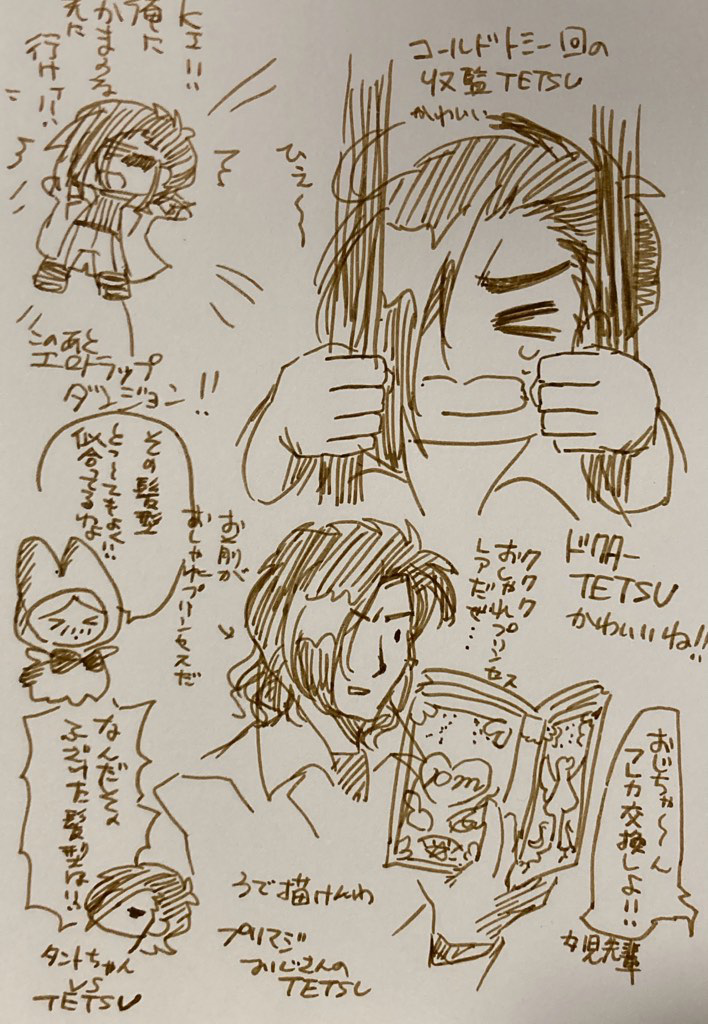 KエI!!
俺に
かまうな
先に
行けェ!!
コールドトミー回の
収監TETSU
かわいい
ひぇ〜
このあと
エロトラップ
ダンジョン!!
その髪型
とぅ〜てもよく!!
似合ってるわよ
お前が
おしゃれプリンセスだ
ククク
おしゃれプリンセス
レアだぜ…
ドクター
TETSU
かわいいね!!
おじちゃ〜ん
プレカ交換しよ!!
女児先輩
なんだその
ふざけた髪型は!!
タントちゃん
VS
TETSU
うで描けんわ
プリマジ
おじさんの
TETSU